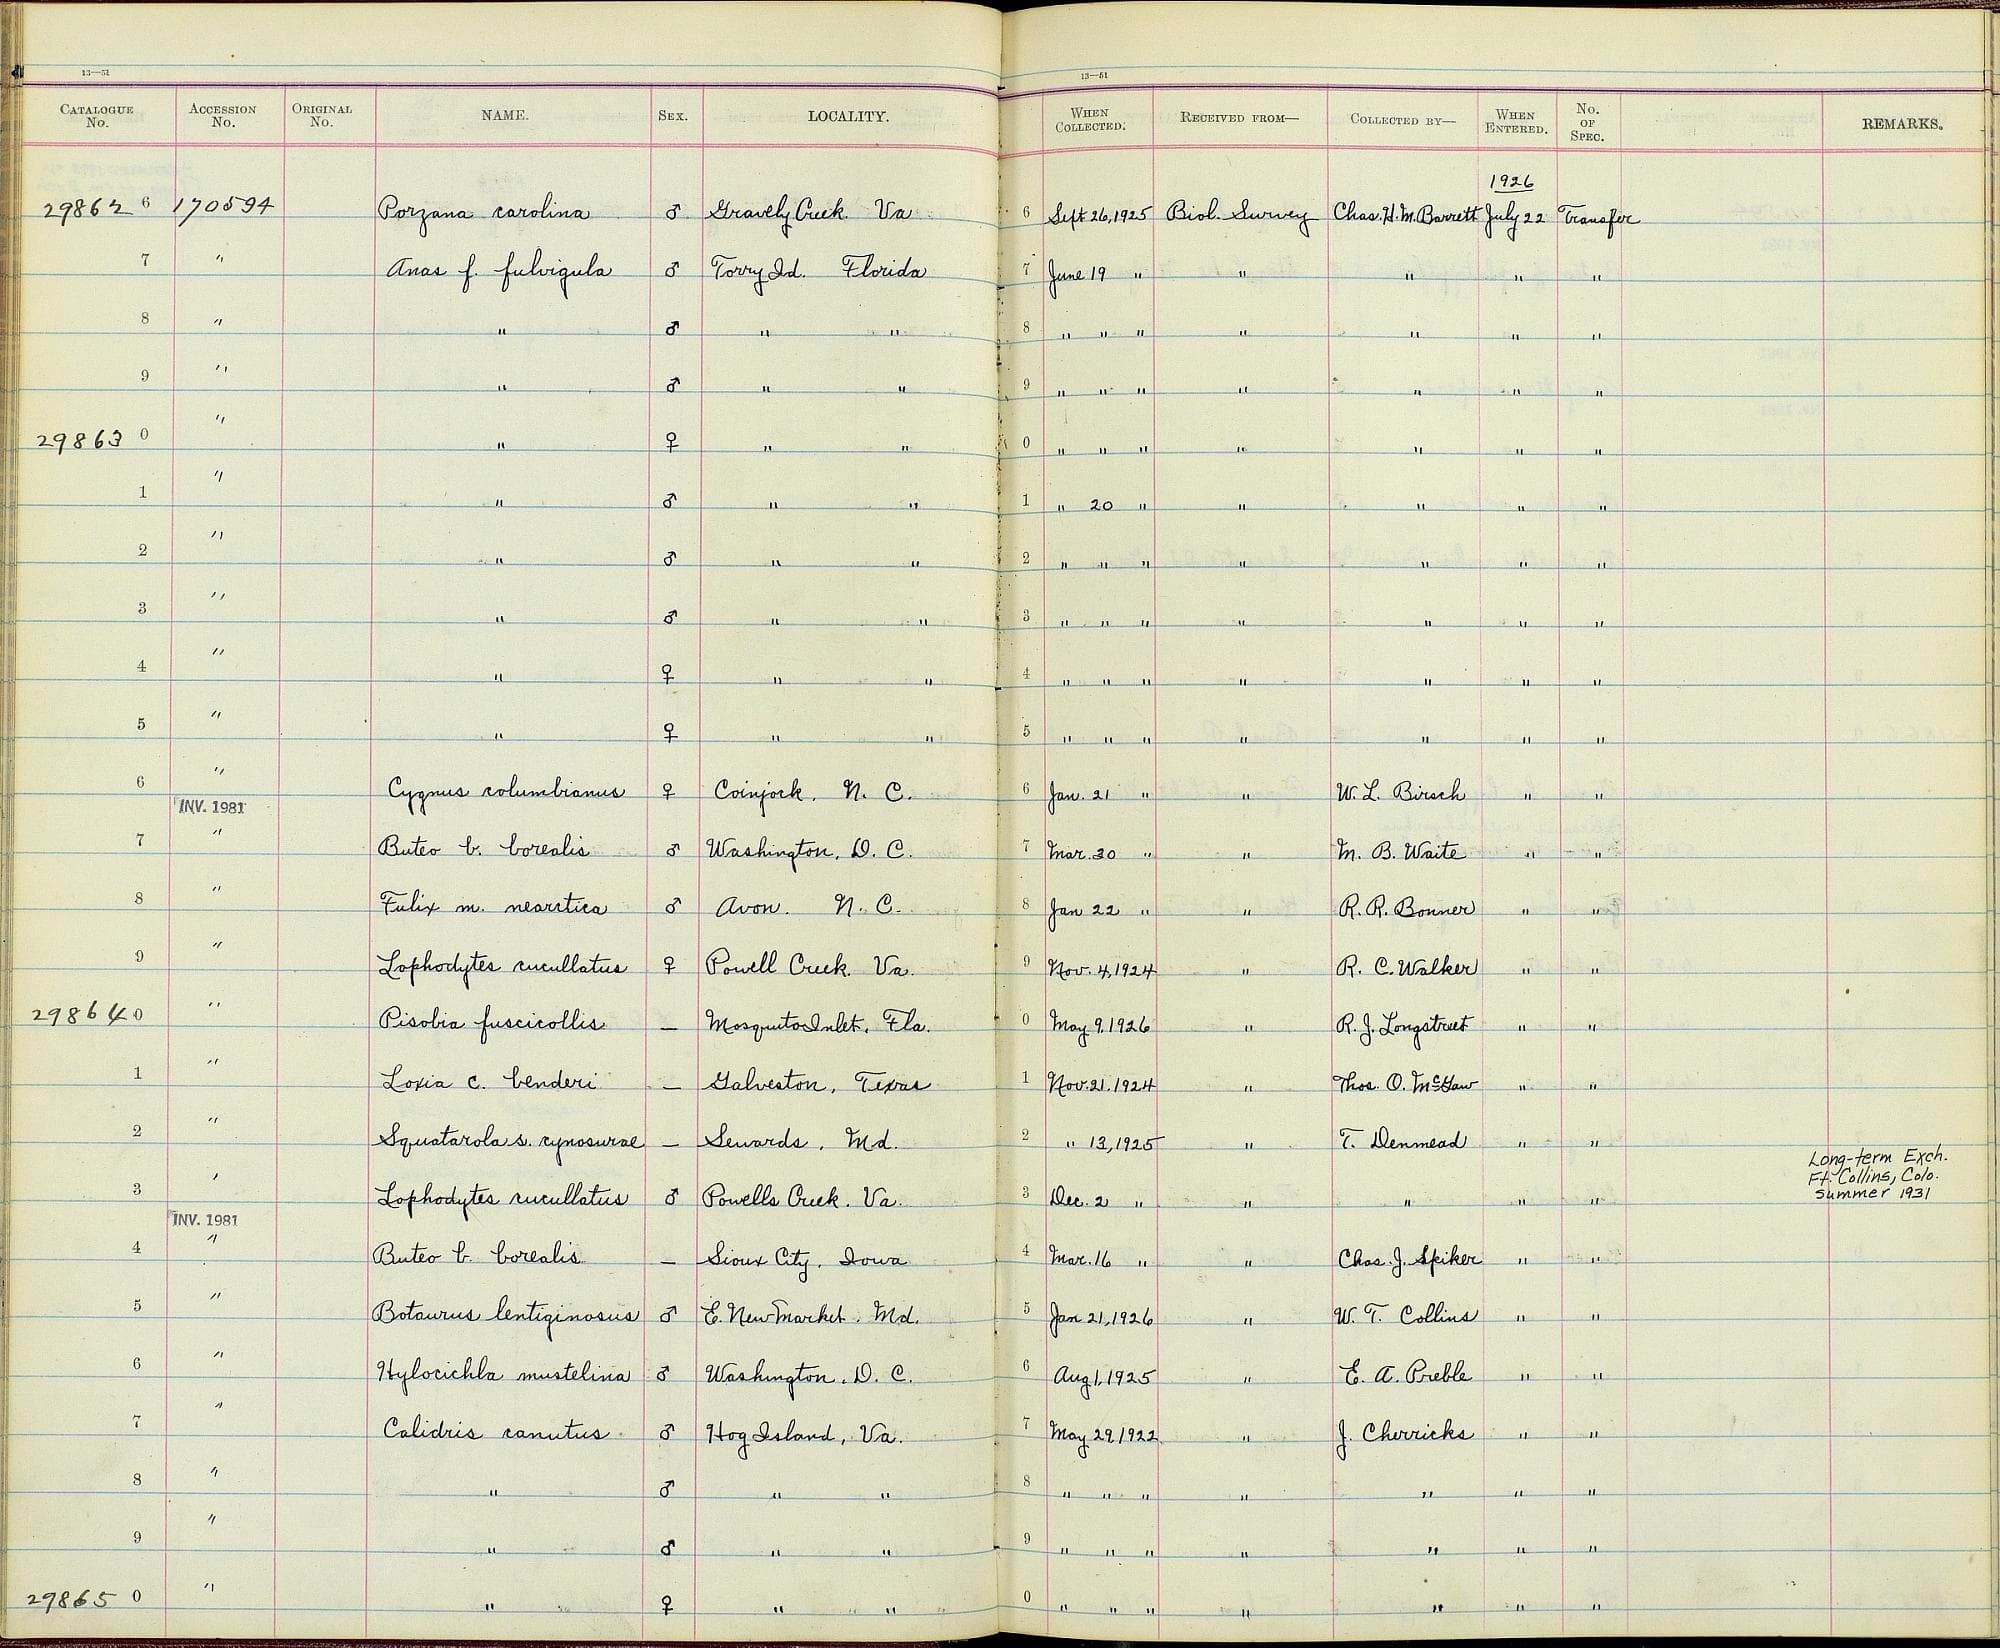 13—51 13—51
CATALOGUE No. ACCESSION No. ORIGINAL No. NAME. SEX. LOCALITY. WHEN COLLECTED. RECEIVED FROM— COLLECTED BY— WHEN ENTERED. No. OF SPEC. REMARKS.
1926
29862 6 170594 Porzana carolina ♂ Gravely Creek. Va 6 Sept 26, 1925 Biol. Survey Chas. H. M. Barrett July 22 Transfer
7 " Anas f. fulvigula ♂ Torry Id. Florida 7 June 19 " " " " "
8 " " ♂ " " 8 " " " " " " "
9 " " ♂ " " 9 " " " " " " "
29863 0 " " ♀ " " 0 " " " " " " "
1 " " ♂ " " 1 " 20 " " " " "
2 " " ♂ " " 2 " " " " " " "
3 " " ♂ " " 3 " " " " " " "
4 " " ♀ " " 4 " " " " " " "
5 " " ♀ " " 5 " " " " " " "
6 " Cygnus columbianus ♀ Coinjock, N. C. 6 Jan. 21 " " W. L. Birsch " "
INV. 1981
7 " Buteo b. borealis ♂ Washington, D. C. 7 Mar. 30 " " M. B. Waite " "
8 " Fulix m. nearctica ♂ Avon. N. C. 8 Jan 22 " " R. R. Bonner " "
9 " Lophodytes cucullatus ♀ Powell Creek. Va. 9 Nov. 4, 1924 " R. C. Walker " "
29864 0 " Pisobia fuscicollis — Mosquito Inlet, Fla. 0 May 9, 1926 " R. J. Longstreet " "
1 " Loxia c. benderi — Galveston, Texas 1 Nov. 21. 1924 " Thos. O. McGaw " "
2 " Squatarola s. cynosurae — Sewards, Md. 2 " 13, 1925 " T. Denmead " "
Long-term Exch.
Ft. Collins, Colo.
summer 1931
3 " Lophodytes cucullatus ♂ Powells Creek. Va. 3 Dec. 2 " " " " "
INV. 1981
4 " Buteo b. borealis — Sioux City, Iowa 4 Mar. 16 " " Chas. J. Spiker " "
5 " Botaurus lentiginosus ♂ E. New Market, Md. 5 Jan 21, 1926 " W. T. Collins " "
6 " Hylocichla mustelina ♂ Washington, D. C. 6 Aug 1, 1925 " E. A. Preble " "
7 " Calidris canutus ♂ Hog Island, Va. 7 May 29, 1922 " J. Cherricks " "
8 " " ♂ " " 8 " " " " " " "
9 " " ♂ " " 9 " " " " " " "
29865 0 " " ♀ " " 0 " " " " " " "